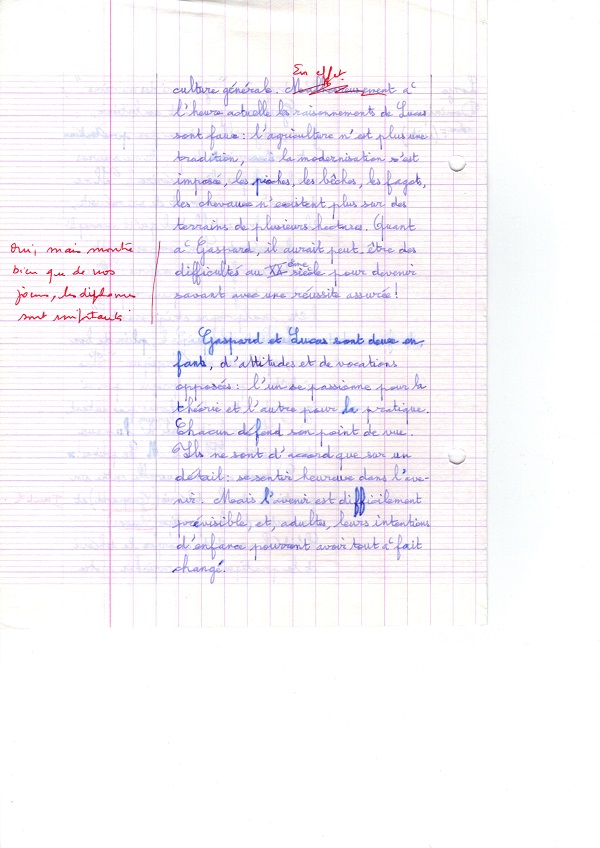 En effet
culture générale. Malheureusement à
l'heure actuelle les raisonnements de Lucas
sont faux : l'agriculture n'est plus une
tradition, la modernisation s'est
imposé, les pioches, les bêches, les fagots,
les chevaux n'existent plus sur des
terrains de plusieurs hectares. Quant
à Gaspard, il aurait peut-être des
difficultés au XXème siècle pour devenir
savant avec une réussite assurée !
Oui, mais montre
bien que de nos
jours, les diplômes
sont importants
Gaspard et Lucas sont deux en-
fants, d'attitudes et de vocations
opposées : l'un se passionne pour la
théorie et l'autre pour la pratique.
Chacun défend son point de vue.
Ils ne sont d'accord que sur un
détail : se sentir heureux dans l'ave-
nir. Mais l'avenir est difficilement
prévisible, et, adultes, leurs intentions
d'enfance pourront avoir tout à fait
changé.